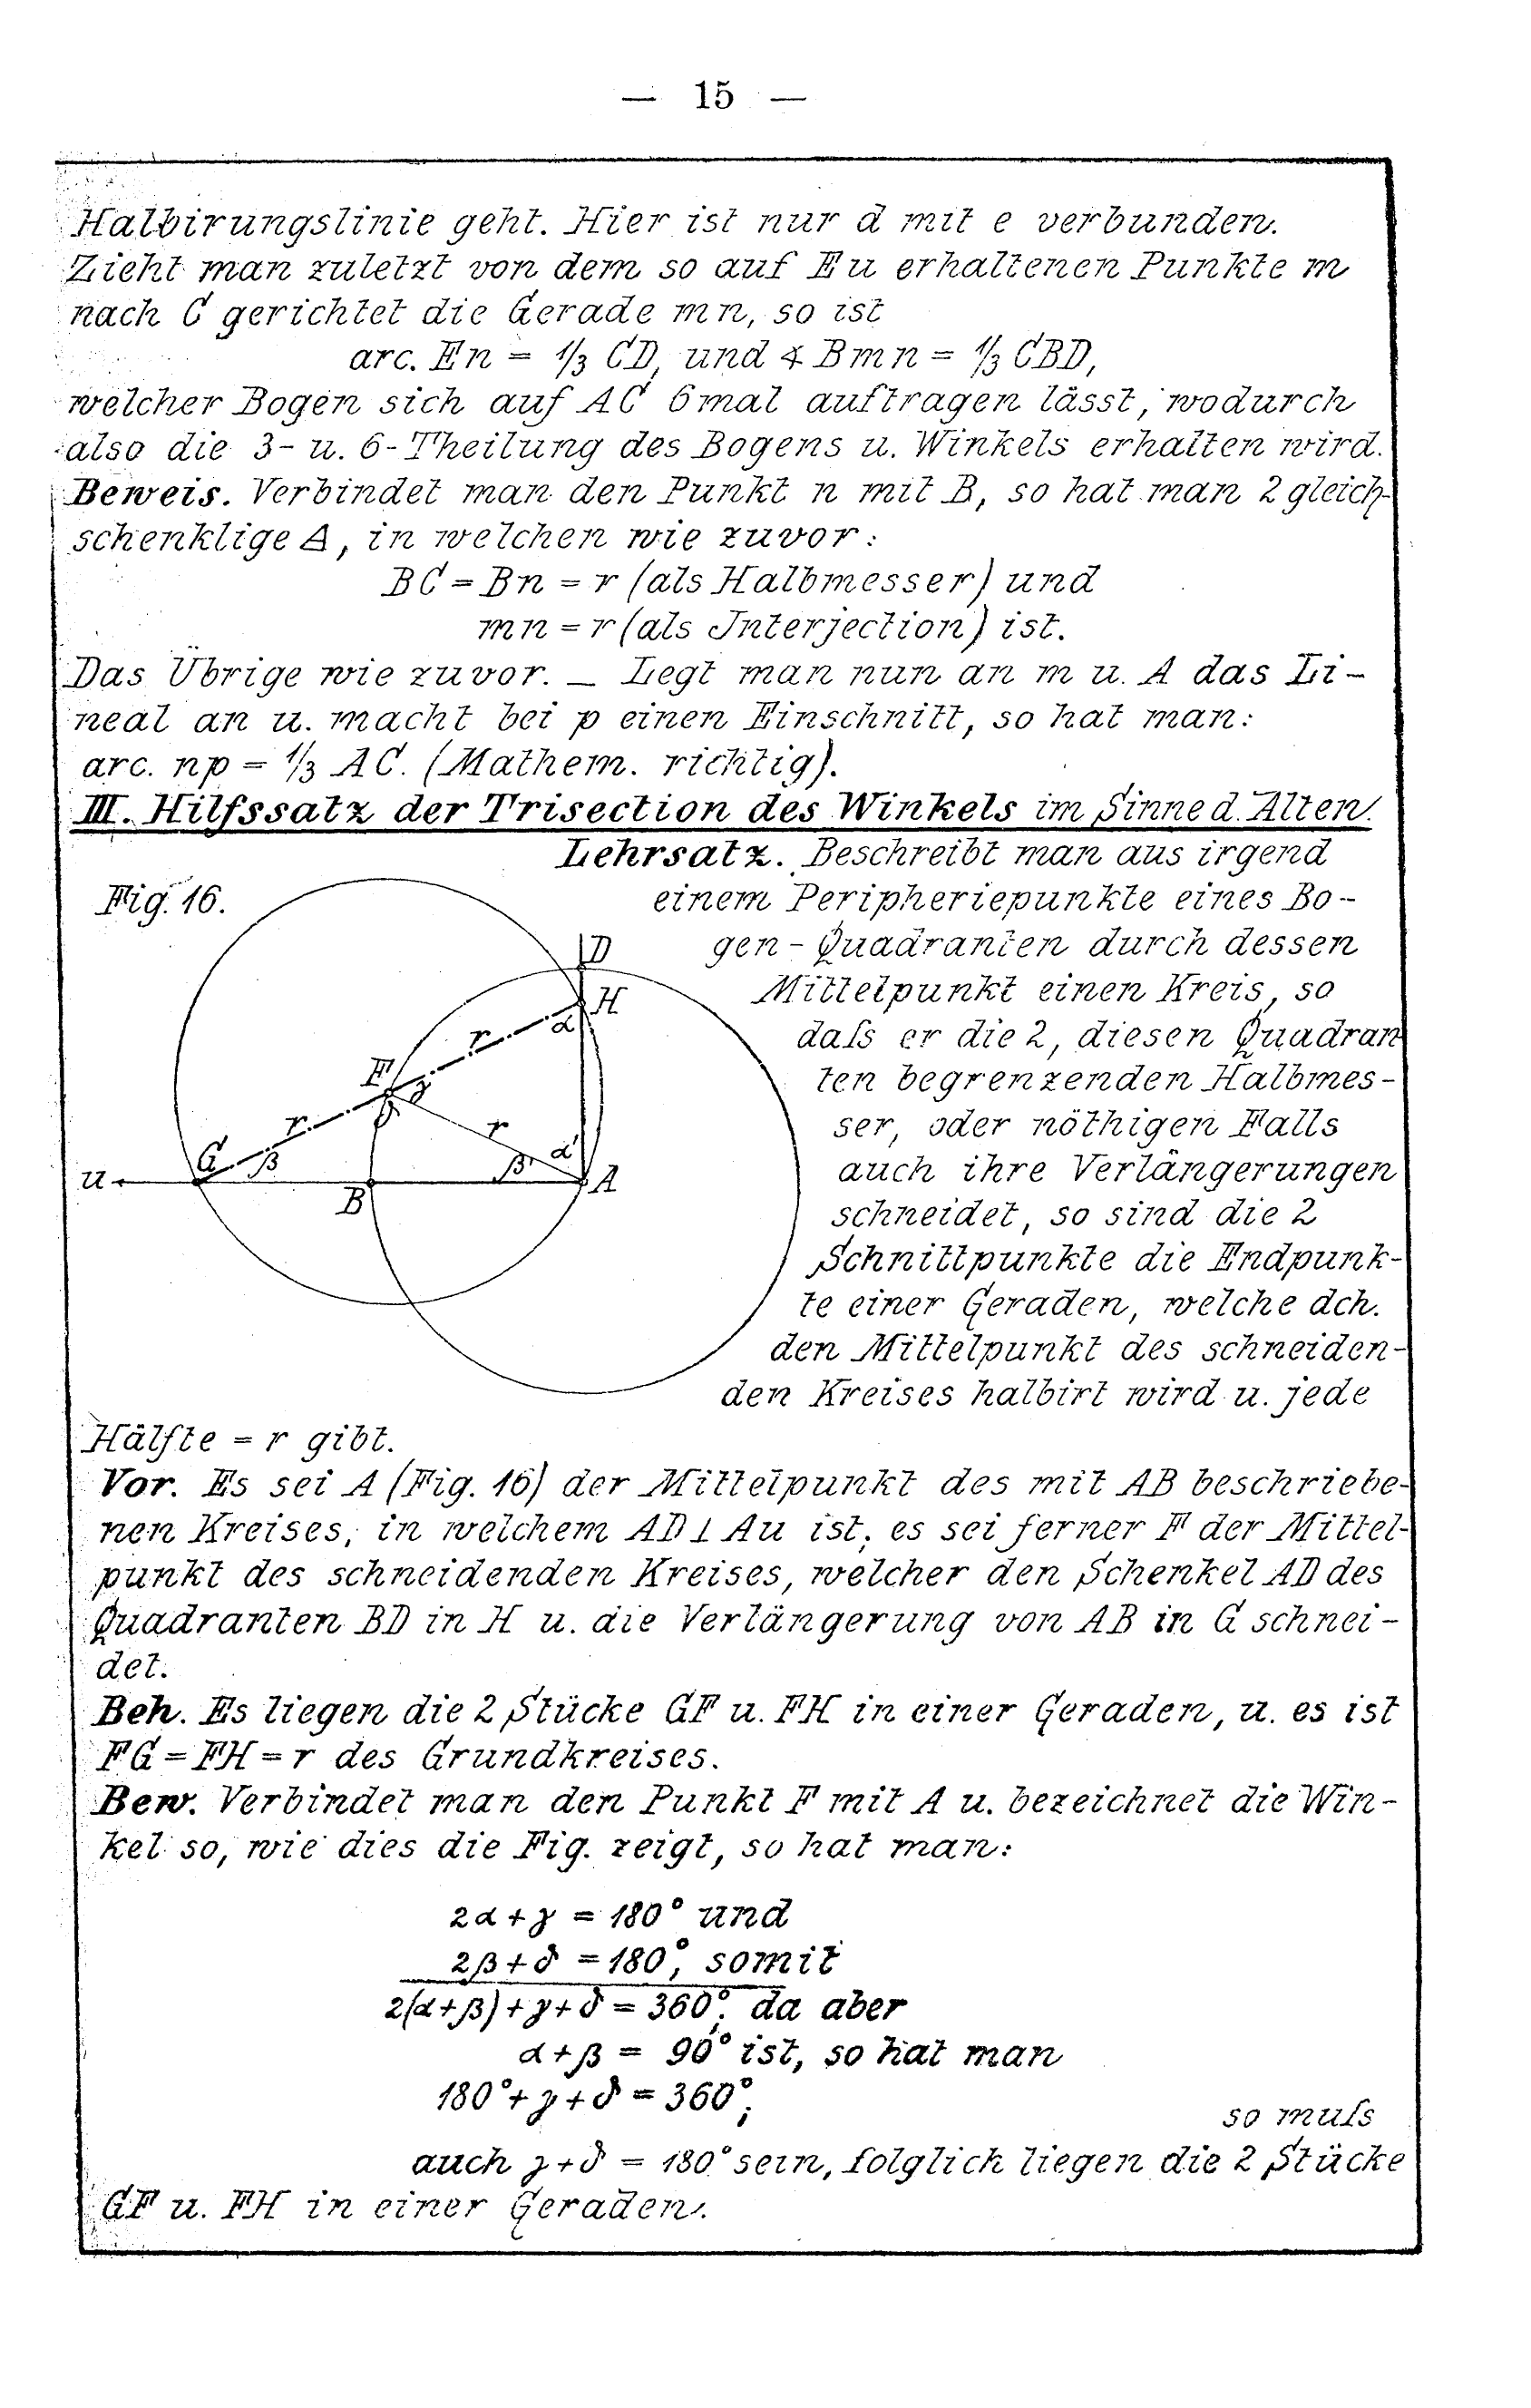 — 15 —
Halbirungslinie geht. Hier ist nur d mit e verbunden.
Zieht man zuletzt von dem so auf Eu erhaltenen Punkte m
nach C gerichtet die Gerade mn, so ist
arc. En = 1/3 CD, und ∢ Bmn = 1/3 CBD,
welcher Bogen sich auf AC 6mal auftragen lässt, wodurch
also die 3- u. 6-Theilung des Bogens u. Winkels erhalten wird.
Beweis. Verbindet man den Punkt n mit B, so hat man 2 gleich-
schenklige Δ, in welchen wie zuvor:
BC = Bn = r (als Halbmesser) und
mn = r (als Interjection) ist.
Das Übrige wie zuvor. — Legt man nun an m u. A das Li-
neal an u. macht bei p einen Einschnitt, so hat man:
arc. np = 1/3 AC. (Mathem. richtig).
III. Hilfssatz der Trisection des Winkels im Sinne d. Alten.
Lehrsatz. Beschreibt man aus irgend
Fig. 16.
einem Peripheriepunkte eines Bo-
gen-Quadranten durch dessen
Mittelpunkt einen Kreis, so
daſs er die 2, diesen Quadran
ten begrenzenden Halbmes-
ser, oder nöthigen Falls
auch ihre Verlängerungen
schneidet, so sind die 2
Schnittpunkte die Endpunk-
te einer Geraden, welche dch.
den Mittelpunkt des schneiden-
den Kreises halbirt wird u. jede
D
H
α
r
F
γ
δ
r
r
G
β
α'
β'
u
B
A
Hälfte = r gibt.
Vor. Es sei A (Fig. 16) der Mittelpunkt des mit AB beschriebe-
nen Kreises, in welchem AD ⊥ Au ist; es sei ferner F der Mittel-
punkt des schneidenden Kreises, welcher den Schenkel AD des
Quadranten BD in H u. die Verlängerung von AB in G schnei-
det.
Beh. Es liegen die 2 Stücke GF u. FH in einer Geraden, u. es ist
FG = FH = r des Grundkreises.
Bew. Verbindet man den Punkt F mit A u. bezeichnet die Win-
kel so, wie dies die Fig. zeigt, so hat man:
2α + γ = 180° und
2β + δ = 180°, somit
2(α+β) + γ + δ = 360°; da aber
α + β = 90° ist, so hat man
180° + γ + δ = 360°;
so muſs
auch γ + δ = 180° sein, folglich liegen die 2 Stücke
GF u. FH in einer Geraden.